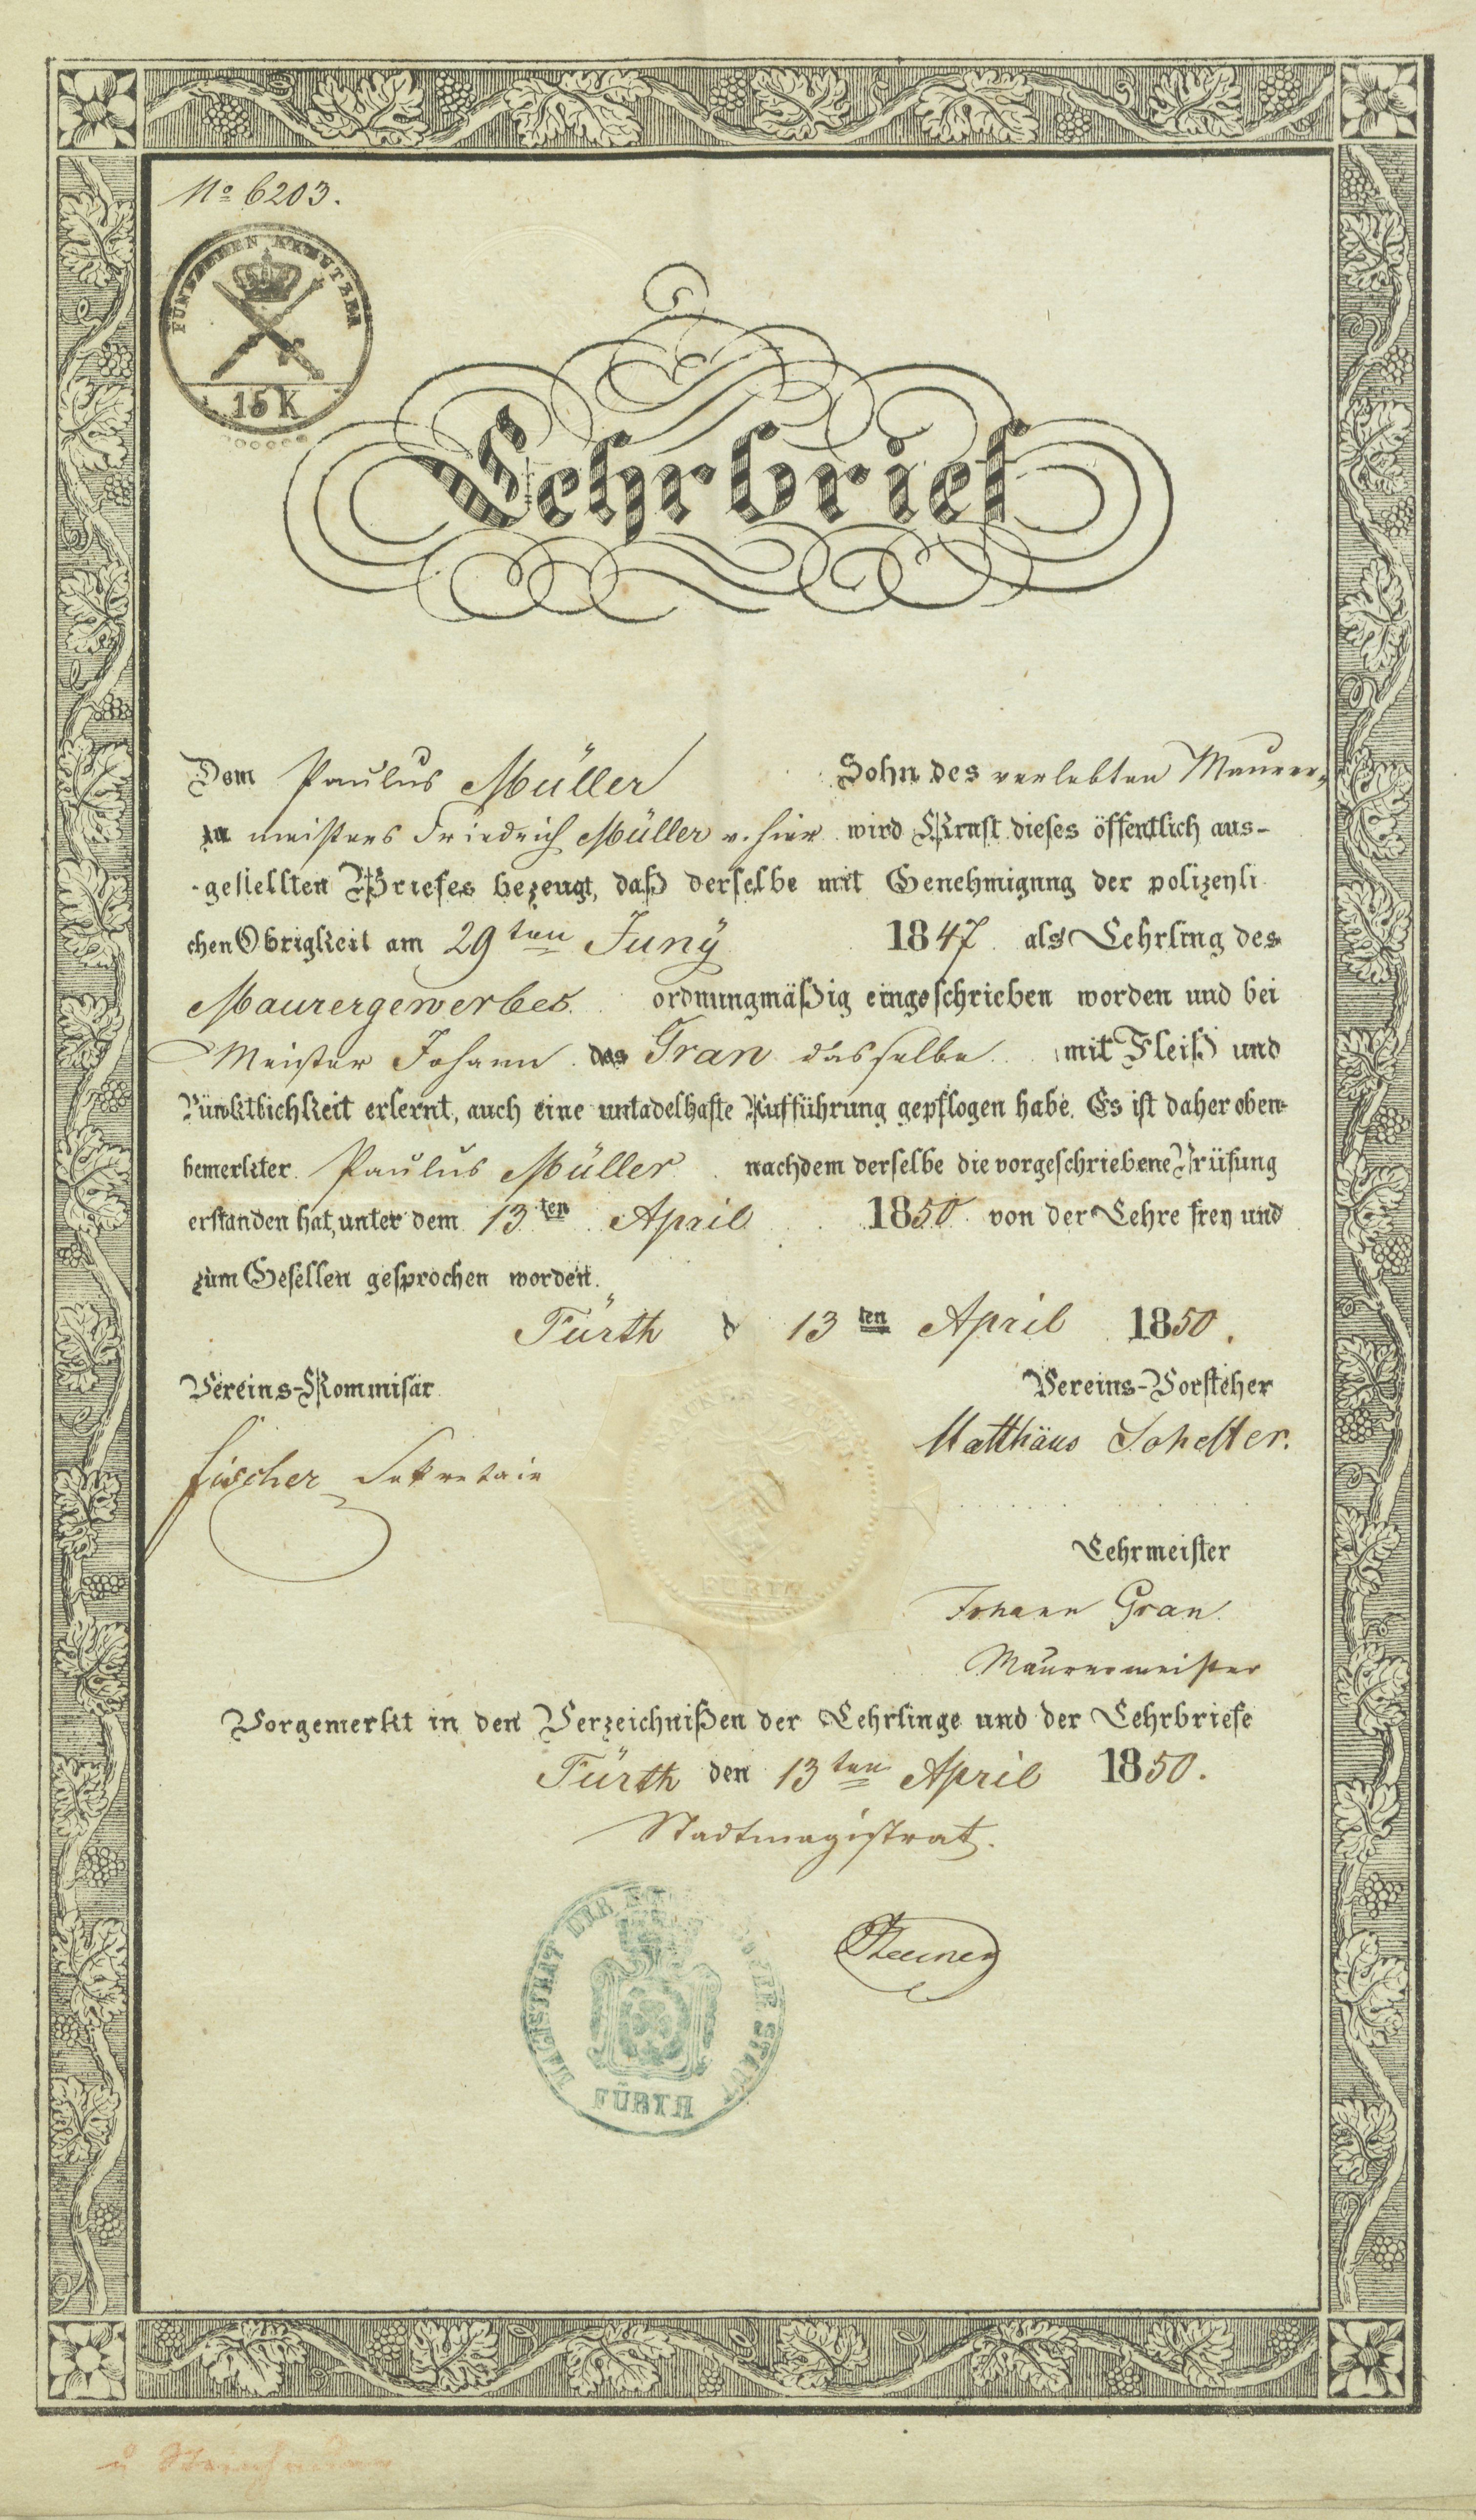 No 6203.
FÜNFZEHEN KREUTZER
15 K
Lehrbrief
Dem Paulus Müller Sohn des verlebten Maurer-
zu meisters Friedrich Müller v. hier wird Kraft dieses öffentlich aus-
gestellten Briefes bezeugt, daß derselbe mit Genehmigung der polizeyli
chen Obrigkeit am 29ten Juny 1847 als Lehrling des
Maurergewerbes ordnungmäßig eingeschrieben worden und bei
Meister Johann das Gran dasselbe mit Fleiß und
Pünktlichkeit erlernt, auch eine untadelhafte Aufführung gepflogen habe. Es ist daher oben-
bemerkter Paulus Müller nachdem derselbe die vorgeschriebene Prüfung
erstanden hat, unter dem 13ten April 1850 von der Lehre frey und
zum Gesellen gesprochen worden.
Fürth d 13ten April 1850.
Vereins-Kommisär
Vereins-Vorsteher
Matthäus
Fischer Sekretair
FÜRTH
Lehrmeister
Johann Gran
Maurermeister
Vorgemerkt in den Verzeichnißen der Lehrlinge und der Lehrbriefe
Fürth den 13ten April 1850.
Stadtmagistrat.
MAGISTRAT DER STADT
FÜRTH